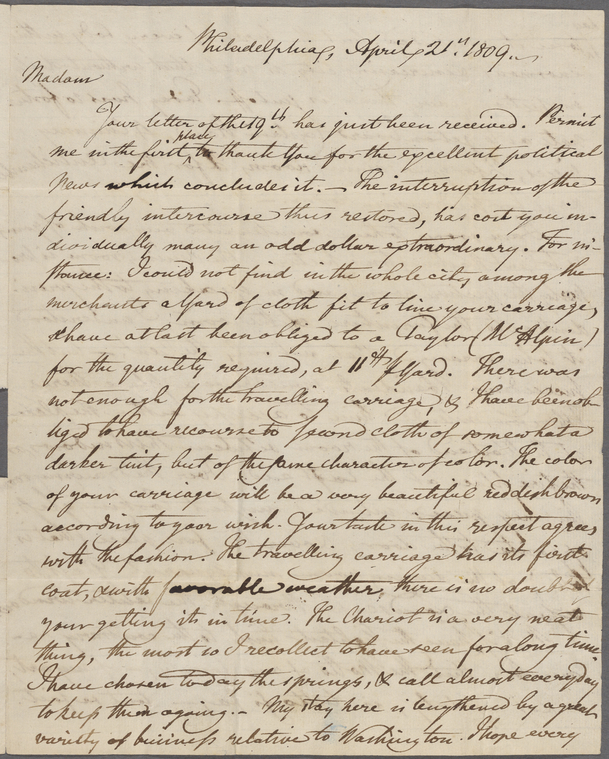 Philadelphia, April 21st. 1809.
Madam
Your letter of the 19th has just been received. Permit
me in the first place to thank you for the excellent political
news which concludes it. — The interruption of the
friendly intercourse thus restored, has cost you in-
dividually many an odd dollar extraordinary. For in-
stance: I could not find in the whole city, among the
merchants a Yard of cloth fit to line your carriage,
& have at last been obliged to a Taylor (McAlpin)
for the quantity required, at 11 Yard. There was
not enough for the travelling carriage, & I have been ob-
liged to have recourse to second cloth of somewhat a
darker tint, but of the same character of color. The color
of your carriage will be a very beautiful reddish brown
according to your wish. Your taste in this respect agrees
with the fashion. The travelling carriage has its first
coat, & with favorable weather, there is no doubt of
your getting it in time. The Chariot is a very neat
thing, the most so I recollect to have seen for a long time.
I have chosen to day the springs, & call almost every day
to keep them agoing. — My stay here is lengthened by a great
variety of business relative to Washington. I hope every